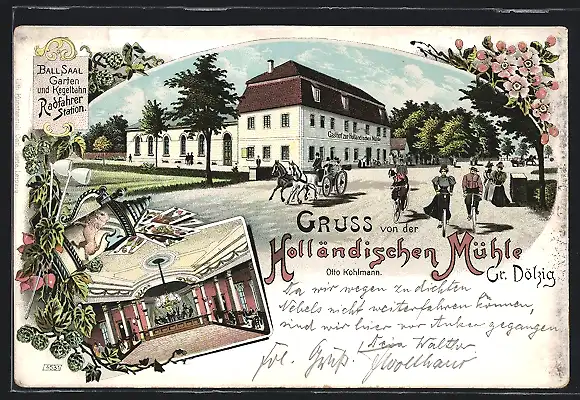 BALL SAAL
Garten
und Kegelbahn
Radfahrer
Station.
Gasthof zur Holländischen Mühle
GRUSS von der
Holländischen Mühle
Otto Kohlmann.
Gr. Dölzig
Da wir wegen zu dichten
Nebels nicht weiterfahren können,
sind wir hier vor Anker gegangen
Frl. Gruß
Walther
6563